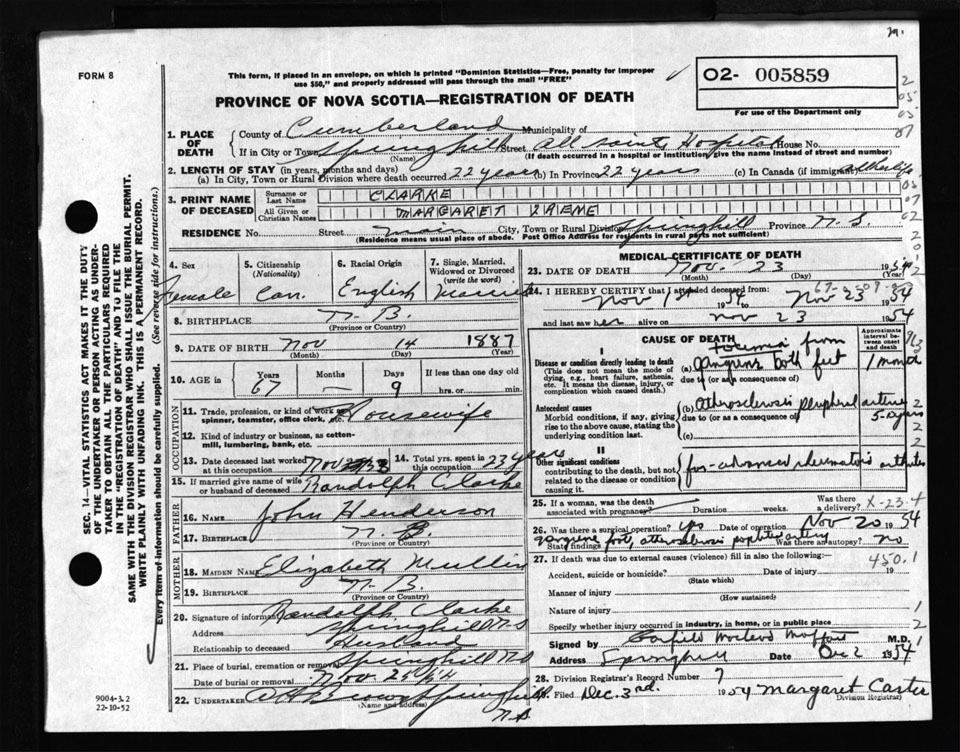 FORM 8
This form, if placed in an envelope, on which is printed "Dominion Statistics—Free, penalty for improper
use $50," and properly addressed will pass through the mail "FREE"
O2- 005859
For use of the Department only
PROVINCE OF NOVA SCOTIA—REGISTRATION OF DEATH
1. PLACE OF DEATH
County of Cumberland Municipality of
If in City or Town Springhill Street All Saints Hospital House No.
(Name) (If death occurred in a hospital or institution, give the name instead of street and number)
2. LENGTH OF STAY (in years, months and days)
(a) In City, Town or Rural Division where death occurred 22 years (b) In Province 22 years (c) In Canada (if immigrant) all her life
3. PRINT NAME OF DECEASED
Surname or Last Name CLARKE
All Given or Christian Names MARGARET IRENE
RESIDENCE No. Street main City, Town or Rural Division Springhill Province N.S.
(Residence means usual place of abode. Post Office Address for residents in rural parts not sufficient)
4. Sex Female
5. Citizenship (Nationality) Can.
6. Racial Origin English
7. Single, Married, Widowed or Divorced (write the word) Married
8. BIRTHPLACE N.B.
(Province or Country)
9. DATE OF BIRTH Nov 14 1887
(Month) (Day) (Year)
10. AGE in Years 67 Months — Days 9 If less than one day old
hrs. or min.
OCCUPATION
11. Trade, profession, or kind of work as spinner, teamster, office clerk, etc. Housewife
12. Kind of industry or business, as cotton-mill, lumbering, bank, etc.
13. Date deceased last worked at this occupation Nov
14. Total yrs. spent in this occupation 23 years
15. If married give name of wife or husband of deceased Randolph Clarke
FATHER
16. NAME John Henderson
17. BIRTHPLACE N.B.
(Province or Country)
MOTHER
18. MAIDEN NAME Elizabeth Mullin
19. BIRTHPLACE N.B.
(Province or Country)
20. Signature of informant Randolph Clarke
Address Springhill N.S
Relationship to deceased Husband
21. Place of burial, cremation or removal Springhill N.S
Date of burial or removal Nov. 25/54
22. UNDERTAKER A H Brown Springhill
(Name and address)
N.S
MEDICAL CERTIFICATE OF DEATH
23. DATE OF DEATH Nov. 23 1954
(Month) (Day) (Year)
24. I HEREBY CERTIFY that I attended deceased from:
Nov 1st 1954 to Nov 23 1954
and last saw her alive on Nov 23 1954
CAUSE OF DEATH
Approximate interval between onset and death
Disease or condition directly leading to death
(This does not mean the mode of dying, e.g., heart failure, asthenia, etc. It means the disease, injury, or complication which caused death.)
Toxemia from
(a) gangrene both feet 1 month
due to (or as consequence of)
Antecedent causes
Morbid conditions, if any, giving rise to the above cause, stating the underlying condition last.
(b) Atherosclerosis peripheral arteries 5 years
due to (or as a consequence of)
(c)
II
Other significant conditions
contributing to the death, but not related to the disease or condition causing it.
far-advanced rheumatoid arthritis
25. If a woman, was the death associated with pregnancy? Duration weeks. Was there a delivery? X-23-4
26. Was there a surgical operation? yes Date of operation Nov 20 1954
State findings gangrene foot, atherosclerosis popliteal artery Was there an autopsy? no
27. If death was due to external causes (violence) fill in also the following:—
450.1
Accident, suicide or homicide? Date of injury 19
(State which)
Manner of injury
(How sustained)
Nature of injury
Specify whether injury occurred in industry, in home, or in public place
Signed by Garfield McLeod Moffatt M.D.
Address Springhill Date Dec 2 1954
28. Division Registrar's Record Number 7
Filed Dec. 3rd. 1954 Margaret Caster
(Division Registrar)
SEC. 14—VITAL STATISTICS ACT MAKES IT THE DUTY
OF THE UNDERTAKER OR PERSON ACTING AS UNDER-
TAKER TO OBTAIN ALL THE PARTICULARS REQUIRED
IN THE "REGISTRATION OF DEATH" AND TO FILE THE
SAME WITH THE DIVISION REGISTRAR WHO SHALL ISSUE THE BURIAL PERMIT.
WRITE PLAINLY WITH UNFADING INK. THIS IS A PERMANENT RECORD.
Every item of information should be carefully supplied. (See reverse side for instructions.)
9004-3.2
22-10-52